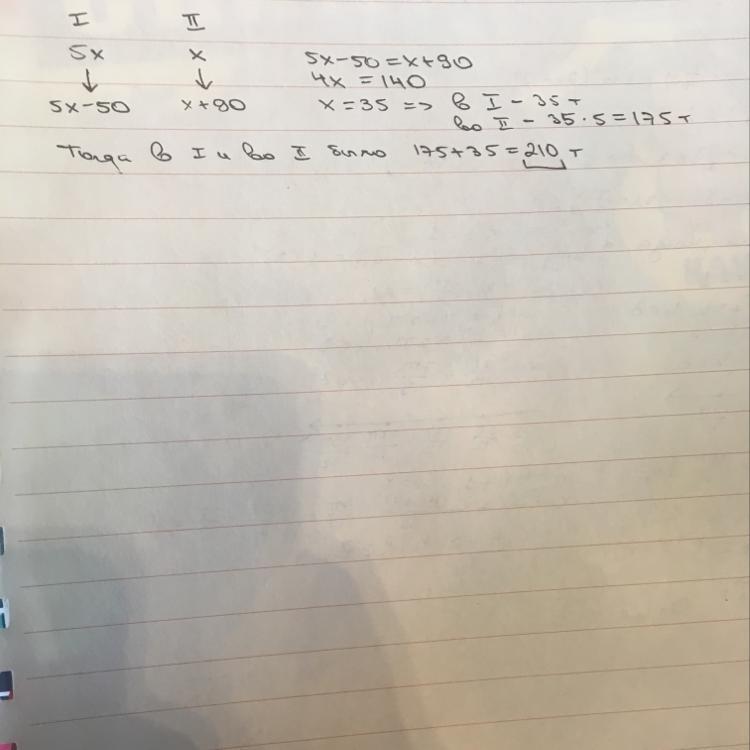 I II
5x x
5x-50=x+90
4x=140
↓ ↓
5x-50 x+90 x=35 => в I - 35 т
во II - 35·5=175 т
Тогда в I и во II было 175+35=210 т